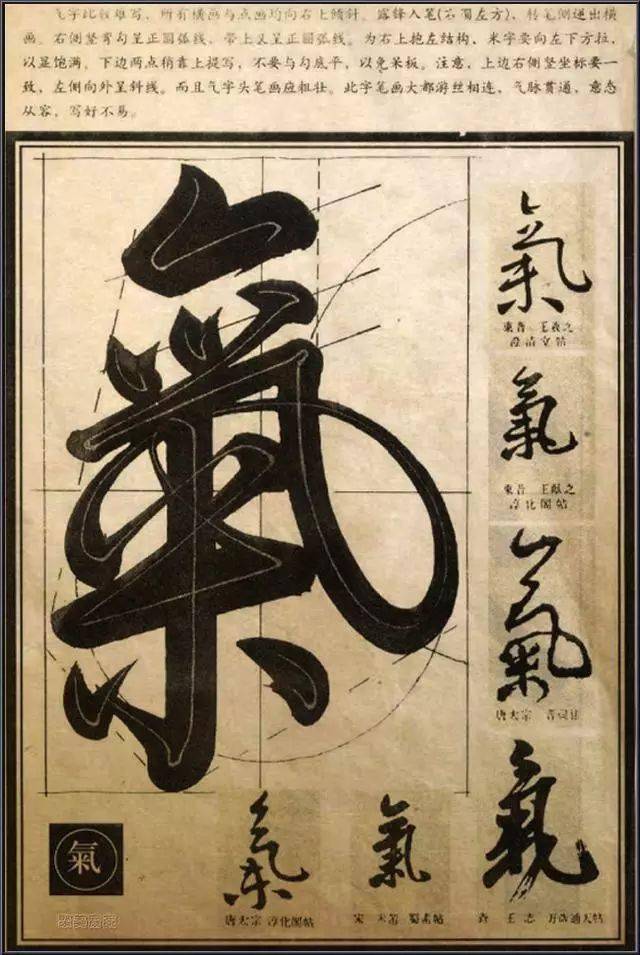 气字比较难写，所有横画与点画均向右上倾斜。露锋入笔(左方)，转笔侧逆出横
画。右侧竖弯勾呈正圆弧线，带上又呈正圆弧线。为右上抱左结构，米字要向左下方拉，
以显饱满。下边两点稍靠上提写，不要与勾底平，以免呆板。注意，上边右侧竖坐标要一
致，左侧向外呈斜线。而且气字头笔画应粗壮。此字笔画大都游丝相连，气脉贯通，意态
从容，写好不易。
氣
氣
東晋 王羲之
澄清堂帖
氣
東晋 王献之
淳化閣帖
氣
唐太宗
氣
唐太宗 淳化閣帖
氣
宋 米芾 蜀素帖
氣
王
氣